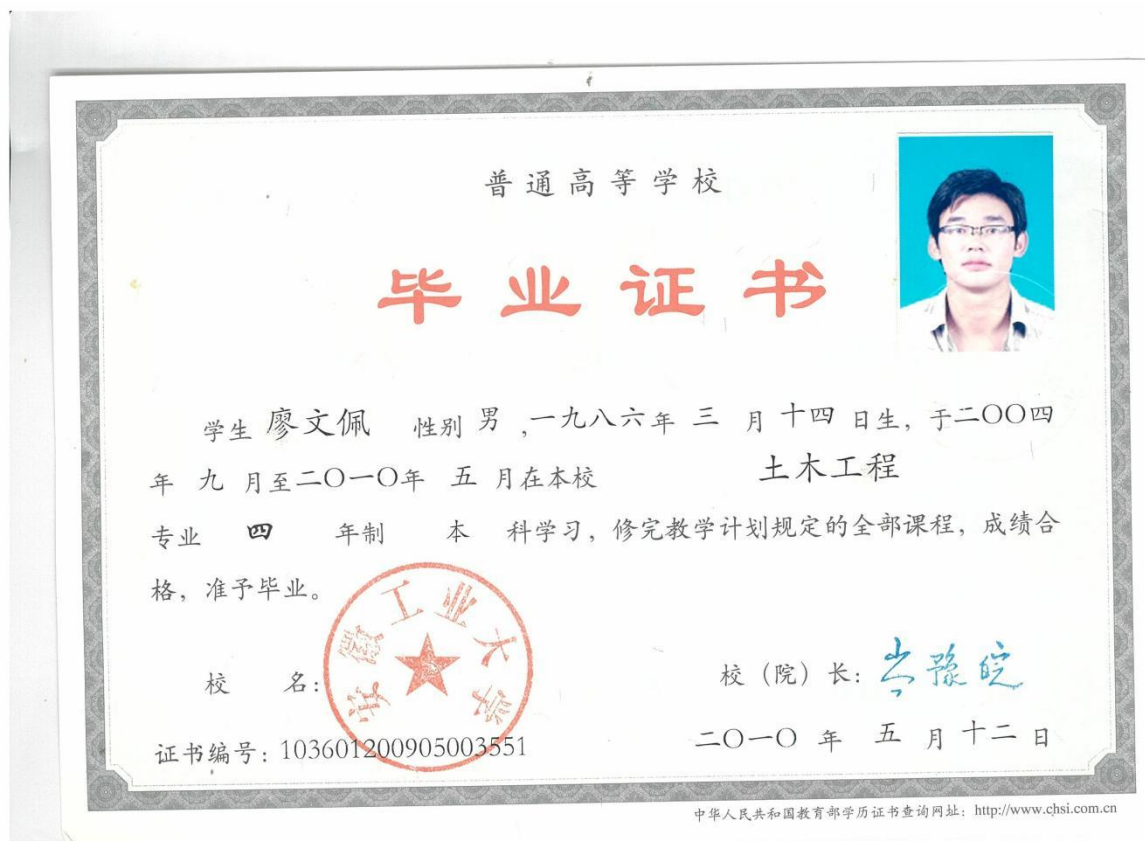 普通高等学校
毕业证书
学生 廖文佩 性别 男 ,一九八六年 三 月 十四 日生, 于二〇〇四
年 九 月至二〇一〇年 五 月在本校 土木工程
专业 四 年制 本 科学习, 修完教学计划规定的全部课程, 成绩合
格, 准予毕业。
安徽工业大学
校 名:
校 (院) 长:
证书编号: 103601200905003551
二〇一〇 年 五 月 十二 日
中华人民共和国教育部学历证书查询网址: http://www.chsi.com.cn